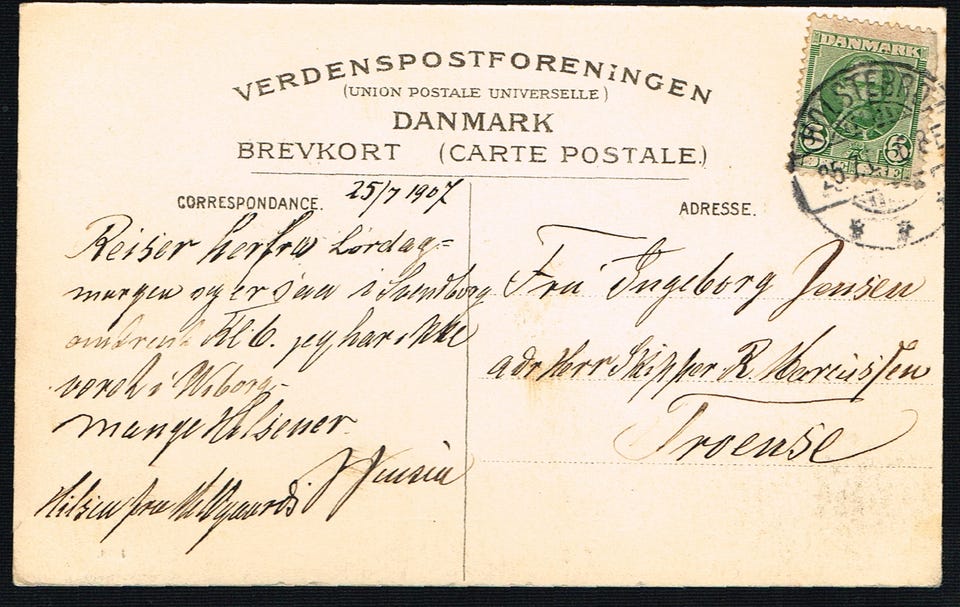 VERDENSPOSTFORENINGEN
(UNION POSTALE UNIVERSELLE)
DANMARK
BREVKORT (CARTE POSTALE.)
DANMARK
HOLSTEBRO
25.7
5 5
CORRESPONDANCE.
25/7 1907
Reiser herfra Lørdag=
morgen og er saa i Svendborg
omtrent Kl. 6. jeg har ikke
været i Wiborg.
mange Hilsener
J Jensen
Hilsen fra
ADRESSE.
Fru Ingeborg Jensen
adr Herr Skipper R. Marcussen
Troense